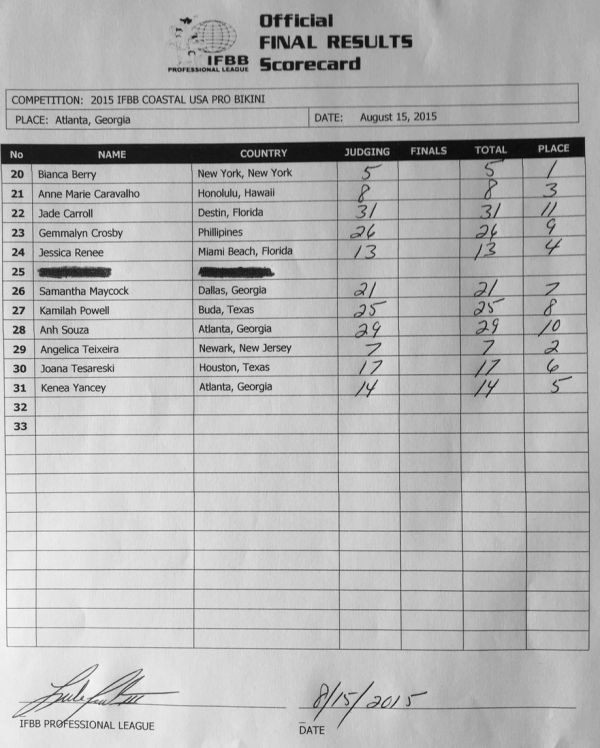 Official
FINAL RESULTS
Scorecard
IFBB
PROFESSIONAL LEAGUE
COMPETITION: 2015 IFBB COASTAL USA PRO BIKINI
PLACE: Atlanta, Georgia DATE: August 15, 2015
No NAME COUNTRY JUDGING FINALS TOTAL PLACE
20 Bianca Berry New York, New York 5 5 1
21 Anne Marie Caravalho Honolulu, Hawaii 8 8 3
22 Jade Carroll Destin, Florida 31 31 11
23 Gemmalyn Crosby Phillipines 26 26 9
24 Jessica Renee Miami Beach, Florida 13 13 4
25
26 Samantha Maycock Dallas, Georgia 21 21 7
27 Kamilah Powell Buda, Texas 25 25 8
28 Anh Souza Atlanta, Georgia 29 29 10
29 Angelica Teixeira Newark, New Jersey 7 7 2
30 Joana Tesareski Houston, Texas 17 17 6
31 Kenea Yancey Atlanta, Georgia 14 14 5
32
33
8/15/2015
IFBB PROFESSIONAL LEAGUE
DATE